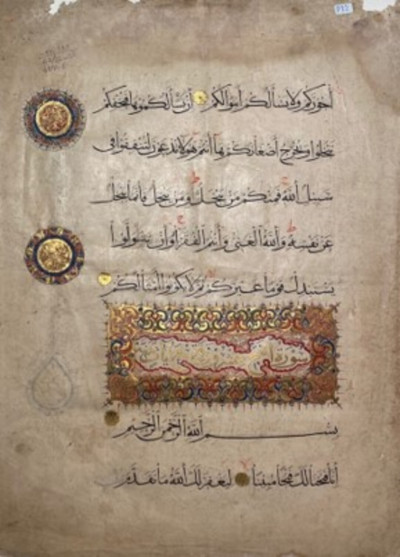 أجوركم ولا يسألكم أموالكم إن يسألكموها فيحفكم
تبخلوا ويخرج أضغانكم ها أنتم هؤلاء تدعون لتنفقوا في
سبيل الله فمنكم من يبخل ومن يبخل فإنما يبخل
عن نفسه والله الغني وأنتم الفقراء وإن تتولوا
يستبدل قوما غيركم ثم لا يكونوا أمثالكم
سورة
بسم الله الرحمن الرحيم
إنا فتحنا لك فتحا مبينا ليغفر لك الله ما تقدم